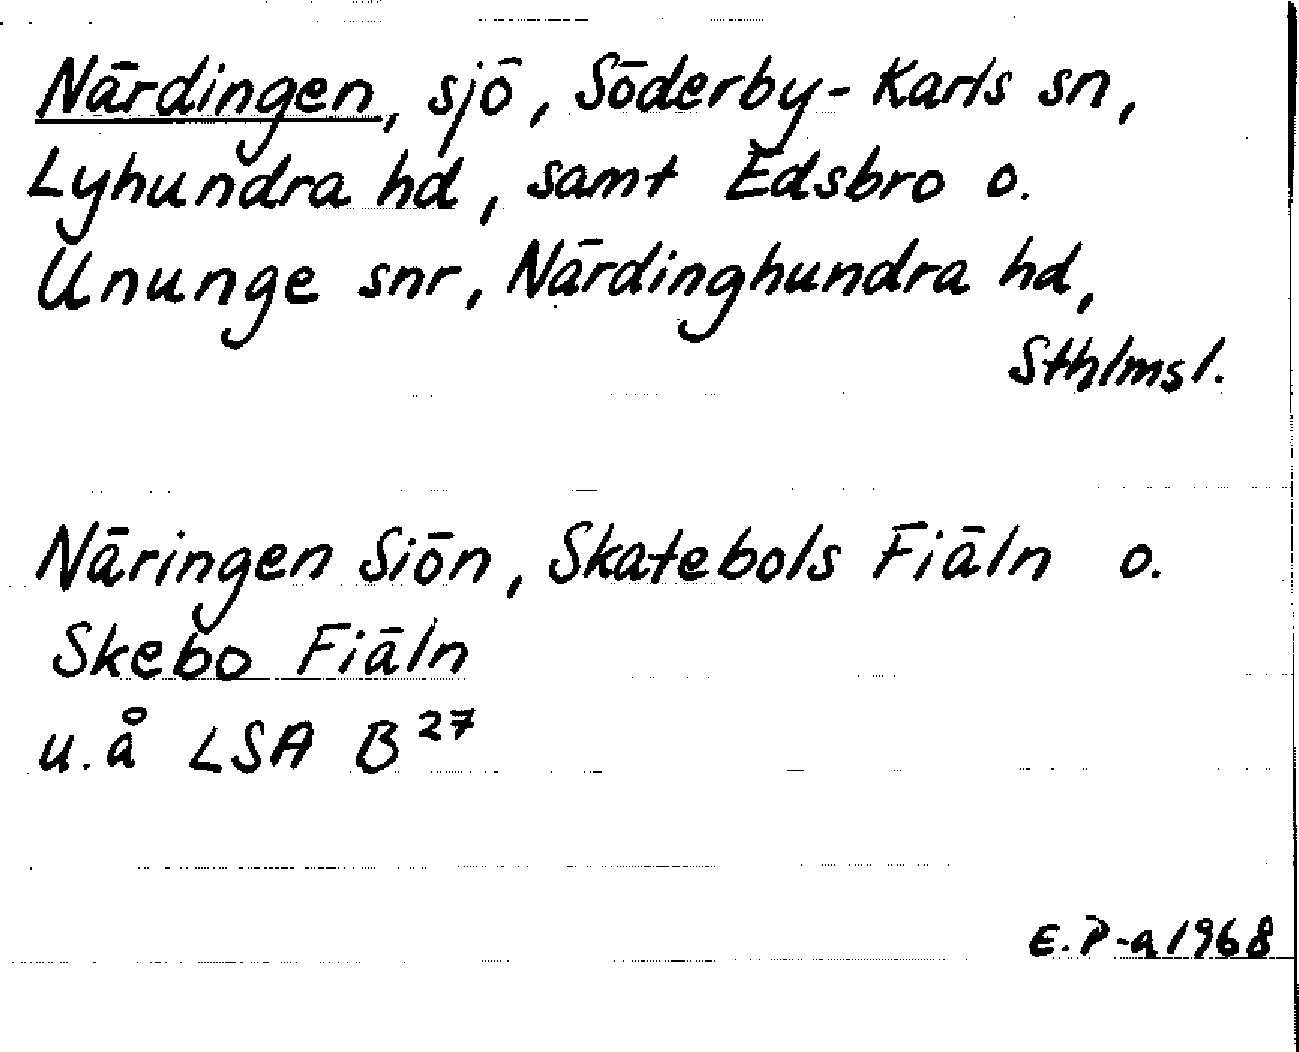 Närdingen, sjö, Söderby-Karls sn,
Lyhundra hd, samt Edsbro o.
Ununge snr, Närdinghundra hd,
Sthlmsl.
Näringen Siön, Skatebols Fiäln o.
Skebo Fiäln
u.å LSA B 27
E.P-a 1968